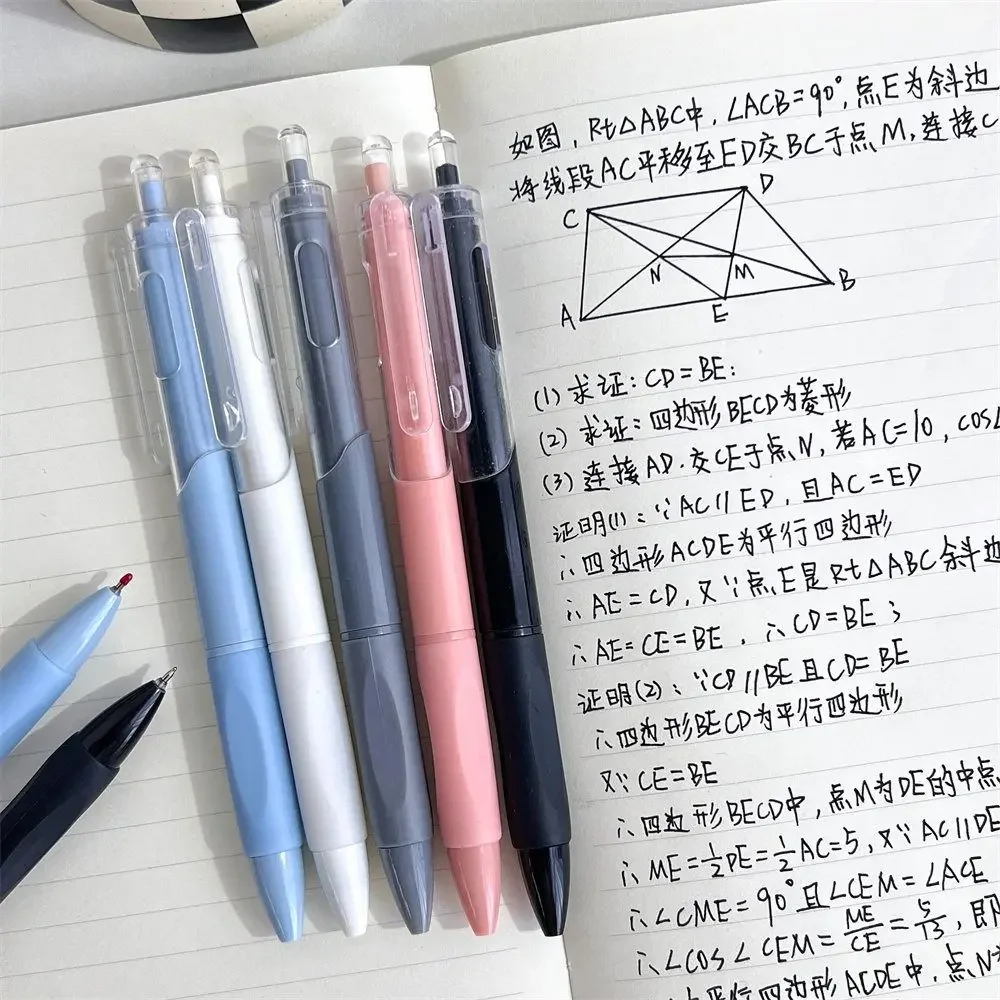 如图，Rt△ABC中，∠ACB=90°，点E为斜边
将线段AC平移至ED交BC于点M，连接C
C
D
N
M
B
A
E
(1) 求证：CD=BE；
(2) 求证：四边形BECD为菱形
(3) 连接AD.交CE于点N，若AC=10，cos∠
证明(1)：∵AC∥ED，且AC=ED
∴四边形ACDE为平行四边形
∴AE=CD，又∵点E是Rt△ABC斜边
∴AE=CE=BE．∴CD=BE；
证明(2)：∵CD∥BE且CD=BE
∴四边形BECD为平行四边形
又∵CE=BE
∴四边形BECD中，点M为DE的中点
∴ME=½DE=½AC=5，又∵AC∥DE
∴∠CME=90°且∠CEM=∠ACE
∴∠COS∠CEM=ME/CE=5/13，即
平行四边形ACDE中，点N